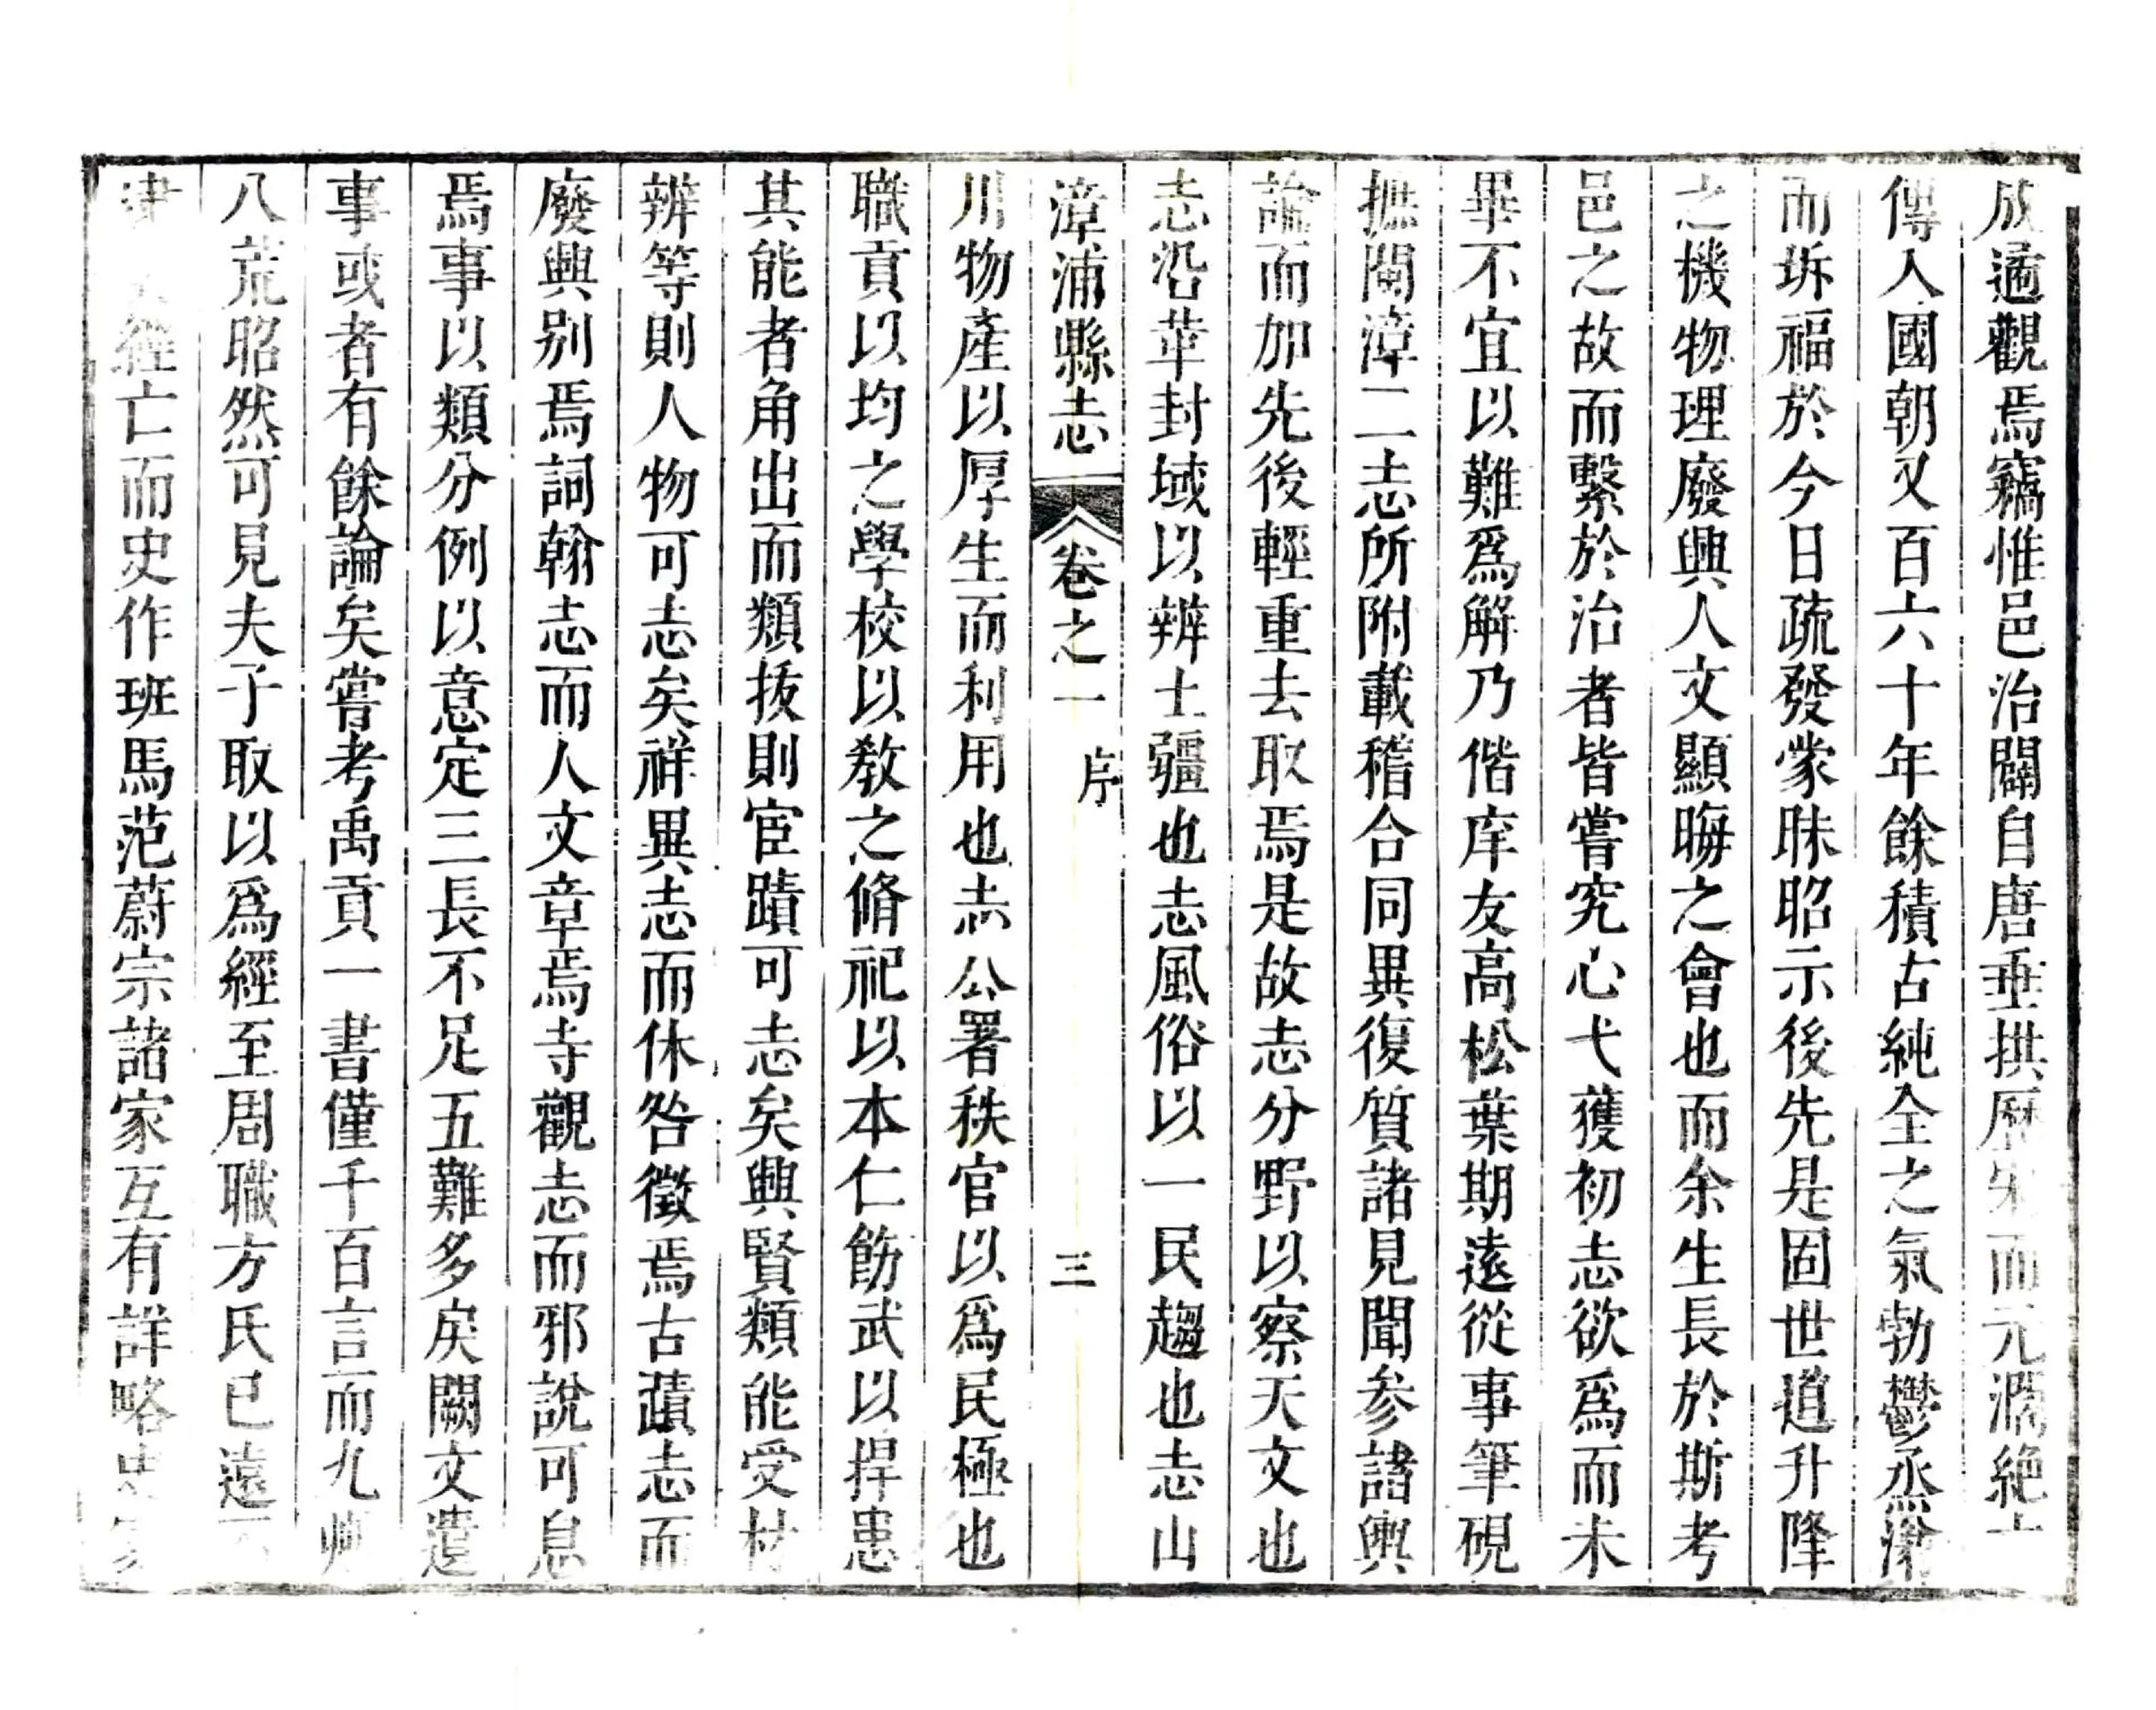 成遹觀焉竊惟邑治闢自唐垂拱歷宋而元瀕絕
傳人國朝又百六十年餘積古純全之氣勃鬱烝
而坼福於今日疏發蒙昧昭示後先是固世道升降
之機物理廢興人文顯晦之會也而余生長於斯考
邑之故而繫於治者皆嘗究心弋獲初志欲爲而未
畢不宜以難爲解乃偕庠友高松葉期遠從事筆硯
摭閩漳二志所附載稽合同異復質諸見聞參諸輿
論而加先後輕重去取焉是故志分野以察天文也
志沿革封域以辨土疆也志風俗以一民趨也志山
漳浦縣志
卷之一
序
三
川物產以厚生而利用也志公署秩官以爲民極也
職貢以均之學校以教之脩祀以本仁飭武以捍患
其能者角出而類拔則宦蹟可志矣興賢類能受材
辨等則人物可志矣祥異志而休咎徵焉古蹟志而
廢興別焉詞翰志而人文章焉寺觀志而邪說可息
焉事以類分例以意定三長不足五難多戾闕文遺
事或者有餘論矣嘗考禹貢一書僅千百言而九州
八荒昭然可見夫子取以爲經至周職方氏已遠
經亡而史作班馬范蔚宗諸家互有詳略史家